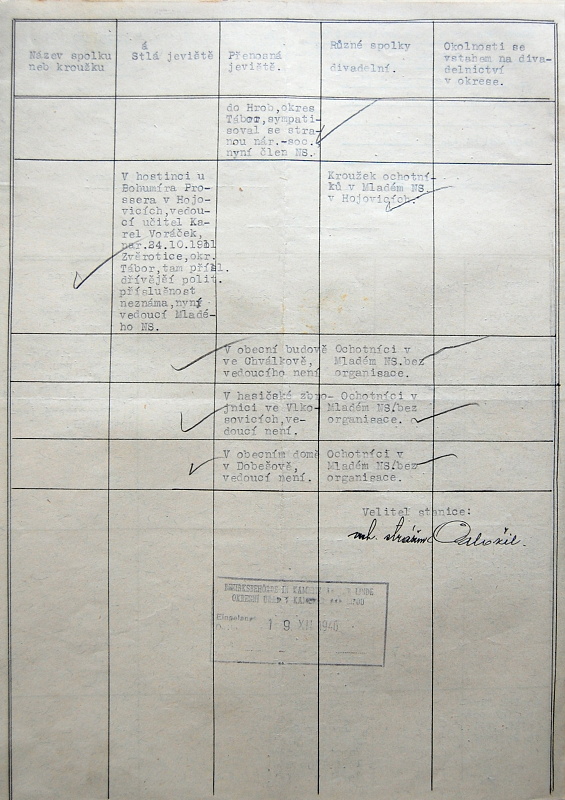 Název spolku
neb kroužku
á
Stlá jeviště
Přenosná
jeviště.
Různé spolky
divadelní.
Okolnosti se
vztahem na diva-
delnictví
v okrese.
do Hrob, okres
Tábor, sympati-
soval se stra-
nou nár.-soc.
nyní člen NS.
V hostinci u
Bohumíra Pro-
ssera v Hojo-
vicích, vedou-
cí učitel Ka-
rel Voráček,
nar. 24.10.1911
Zvěrotice, okr.
Tábor, tam přísl.
dřívější polit.
příslušnost
neznáma, nyní
vedoucí Mladé-
ho NS.
Kroužek ochotní-
ků v Mladém NS.
v Hojovicích.
V obecní budově
ve Chválkově,
vedoucího není
Ochotníci v
Mladém NS.bez
organisace.
V hasičské zbro-
jnici ve Vlko-
sovicích, ve-
doucí není.
Ochotníci v
Mladém NS/bez
organisace.
V obecním domě
v Dobešově,
vedoucí není.
Ochotníci v
Mladém NS/bez
organisace.
Velitel stanice:
vrch. strážm.
OKRESNÍ
Eingelangt
19 XII 1940